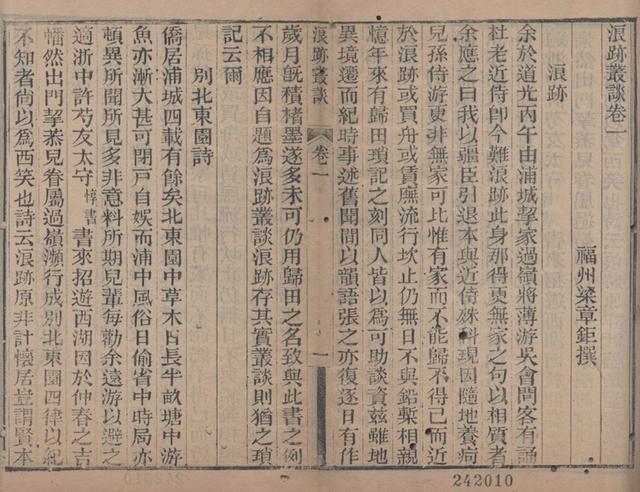 浪跡叢談卷一
福州梁章鉅撰
浪跡
余於道光丙午由浦城挈家過嶺將薄游吳會問客有誦
杜老近侍卽今難浪跡此身那得更無家之句以相質者
余應之曰我以疆臣引退本與近侍殊科現因隨地養疴
兒孫侍游更非無家可比惟有家而不能歸不得已而近
於浪跡或買舟或賃廡流行坎止仍無日不與鉛槧相親
憶年來有歸田瑣記之刻同人皆以爲可助談資玆雖地
異境遷而紀時事述舊聞間以韻語張之亦復逐日有作
浪跡叢談
卷一
一
歲月旣積楮墨遂多未可仍用歸田之名致與此書之例
不相應因自題爲浪跡叢談浪跡存其實叢談則猶之瑣
記云爾
別北東園詩
僑居浦城四載有餘矣北東園中草木日長半畝塘中游
魚亦漸大甚可閉戸自娱而浦中風俗日偷省中時局亦
頓異所聞所見多非意料所期兒輩每勸余遠游以避之
適浙中許芍友太守惇書書來招遊西湖因於仲春之吉
幡然出門挈恭兒眷屬過嶺瀕行成別北東園四律以紀
不知者尙以爲西笑也詩云浪跡原非計懷居豈謂賢本
242010